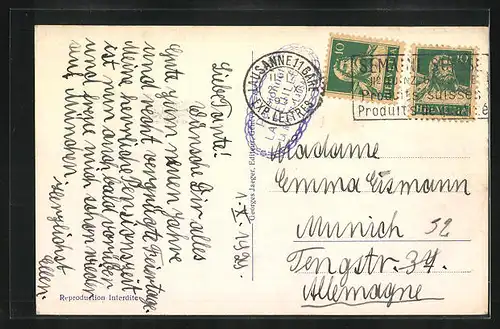 Liebe Tante!
Wünsche Dir alles
Gute zum neuen Jahre
und recht vergnügte Feiertage.
Meine herrliche Pensionszeit
ist nun auch bald vorüber
und freue mich schon wieder
auf München.
Herzlichst
Ellen.
Reproduction Interdite
Georges Jaeger,
LAUSANNE 1 GARE
EXP. LETTRES
10
HELVETIA
10
HELVETIA
SEMAINE SUISSE
Produits suisses
Madame
Emma Eismann
Munich
Tengstr. 34.
Allemagne